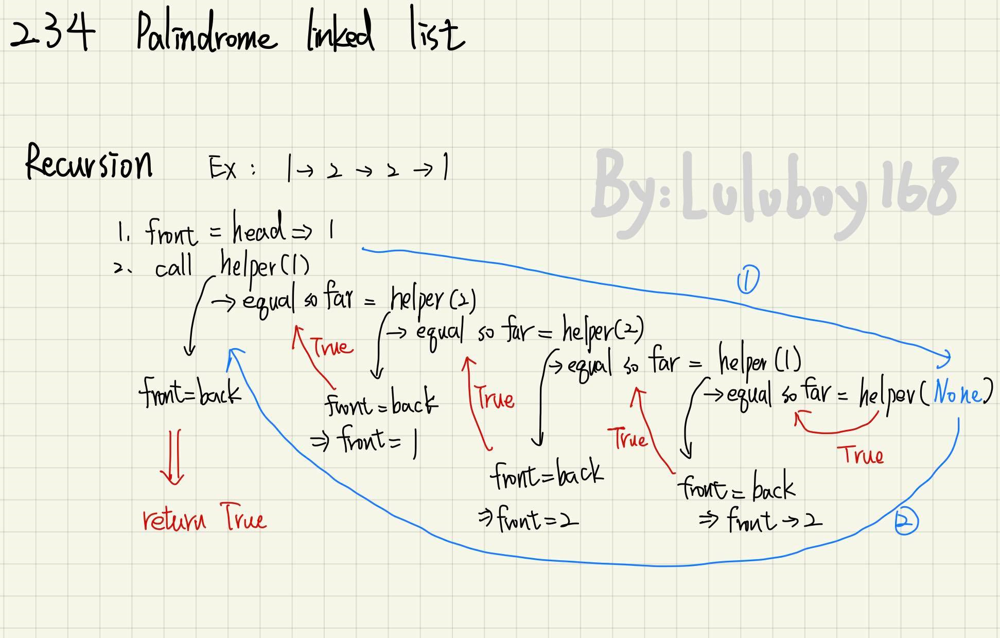 234 Palindrome linked list
Recursion Ex: 1→2→2→1
By: Luluboy168
1. front = head ⇒ 1
2. call helper(1)
①
→ equal so far = helper(2)
→ equal so far = helper(2)
→ equal so far = helper(1)
→ equal so far = helper(None)
True
True
True
True
front=back
front=back
⇒ front=1
front=back
⇒ front=2
front=back
⇒ front→2
return True
②